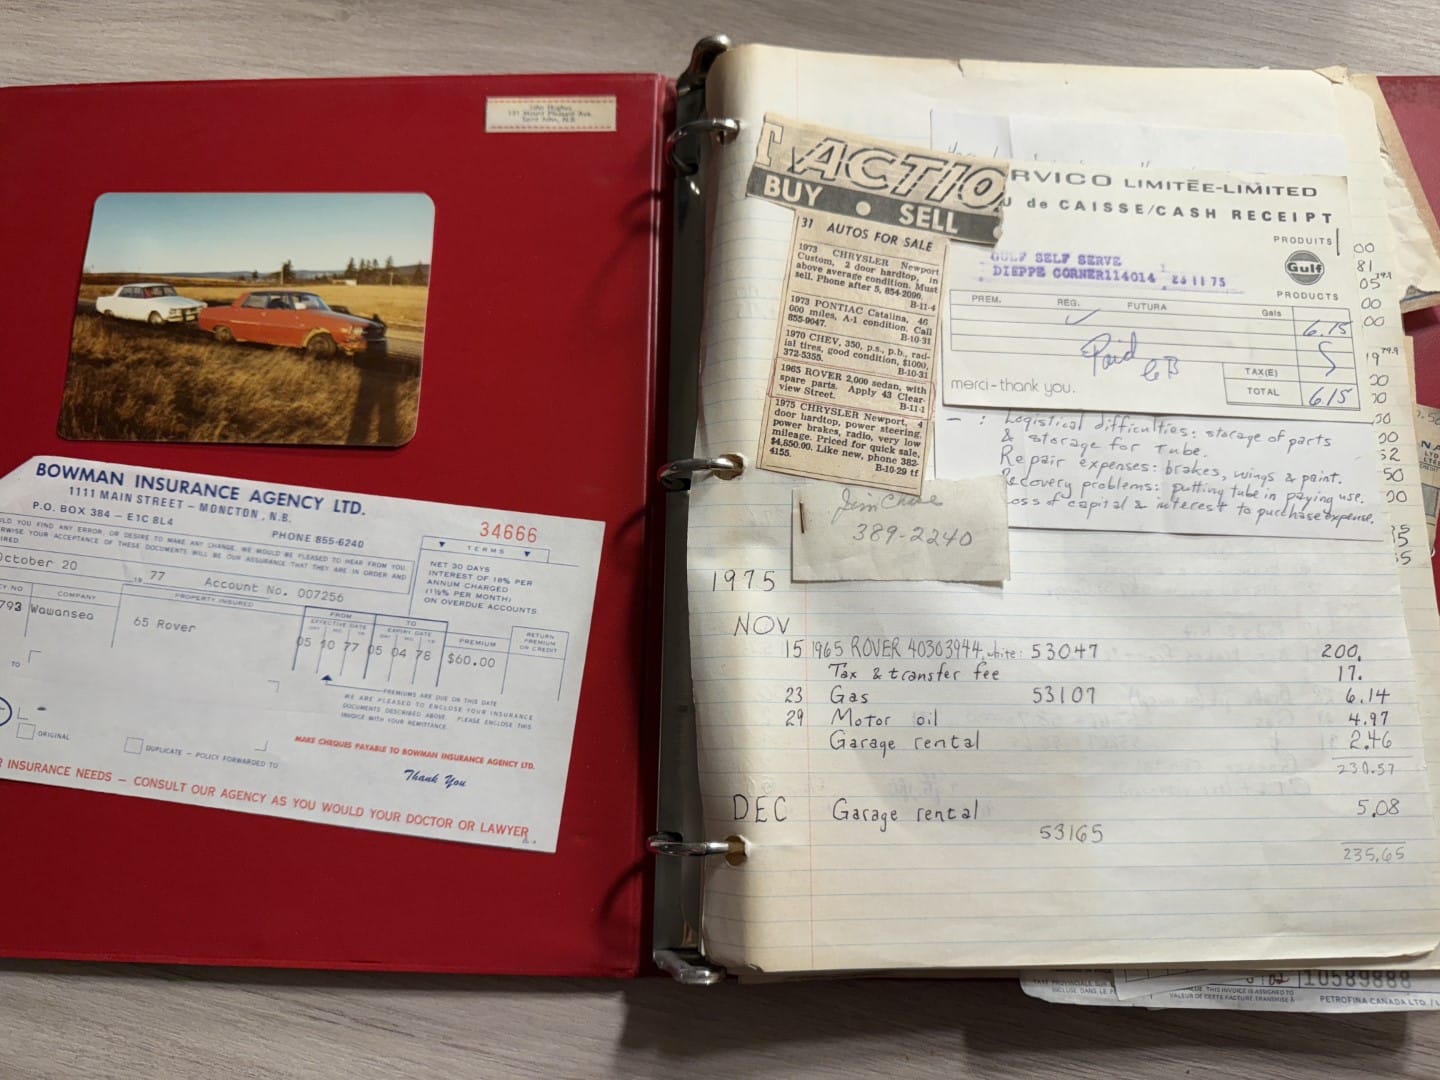 John Hughes
Saint John, N.B.
BOWMAN INSURANCE AGENCY LTD.
1111 MAIN STREET - MONCTON, N.B.
P.O. BOX 384 - E1C 8L4
PHONE 855-6240
34666
TERMS
NET 30 DAYS
INTEREST OF 18% PER
ANNUM CHARGED
(1½% PER MONTH)
ON OVERDUE ACCOUNTS.
YOU FIND ANY ERROR, OR DESIRE TO MAKE ANY CHANGE, WE WOULD BE PLEASED TO HEAR FROM YOU.
YOUR ACCEPTANCE OF THESE DOCUMENTS WILL BE OUR ASSURANCE THAT THEY ARE IN ORDER AND
October 20 19 77 Account No. 007256
NO COMPANY PROPERTY INSURED
FROM TO
EFFECTIVE DATE EXPIRY DATE
DAY MO. YR DAY MO. YR
PREMIUM
RETURN
PREMIUM
OR CREDIT
793 Wawansea 65 Rover 05 10 77 05 04 78 $60.00
TO
PREMIUMS ARE DUE ON THIS DATE
WE ARE PLEASED TO ENCLOSE YOUR INSURANCE
DOCUMENTS DESCRIBED ABOVE. PLEASE ENCLOSE THIS
INVOICE WITH YOUR REMITTANCE.
ORIGINAL
DUPLICATE - POLICY FORWARDED TO
MAKE CHEQUES PAYABLE TO BOWMAN INSURANCE AGENCY LTD.
Thank You
INSURANCE NEEDS - CONSULT OUR AGENCY AS YOU WOULD YOUR DOCTOR OR LAWYER
T ACTIO
BUY • SELL
31 AUTOS FOR SALE
1973 CHRYSLER Newport
Custom, 2 door hardtop, in
above average condition. Must
sell. Phone after 5, 854-2090.
B-11-4
1973 PONTIAC Catalina, 46
000 miles, A-1 condition. Call
855-9047. B-10-31
1970 CHEV, 350, p.s., p.b., rad-
ial tires, good condition, $1000,
372-5355. B-10-31
1965 ROVER 2,000 sedan, with
spare parts. Apply 43 Clear-
view Street. B-11-1
1975 CHRYSLER Newport, 4
door hardtop, power steering,
power brakes, radio, very low
mileage. Priced for quick sale,
$4,850.00. Like new, phone 382-
4155. B-10-29 tf
RVICO LIMITÉE-LIMITED
U de CAISSE/CASH RECEIPT
PRODUITS
Gulf
PRODUCTS
GULF SELF SERVE
DIEPPE CORNER 114014 23 11 75
PREM. REG. FUTURA Gals
6.15
Paid GB
TAX(E)
TOTAL 6.15
merci-thank you.
Logistical difficulties: storage of parts
& storage for Tube.
Repair expenses: brakes, wings & paint.
Recovery problems: putting tube in paying use.
Loss of capital & interest to purchase expense.
389-2240
1975
NOV
15 1965 ROVER 40303944, white: 53047 200.
Tax & transfer fee 17.
23 Gas 53107 6.14
29 Motor oil 4.97
Garage rental 2.46
230.57
DEC Garage rental 5.08
53165
235.65
00
81
05
00
00
19
52
50
00
10589888
THIS INVOICE IS ASSIGNED TO
VALEUR DE CETTE FACTURE TRANSMISE À
PETROFINA CANADA LTD.